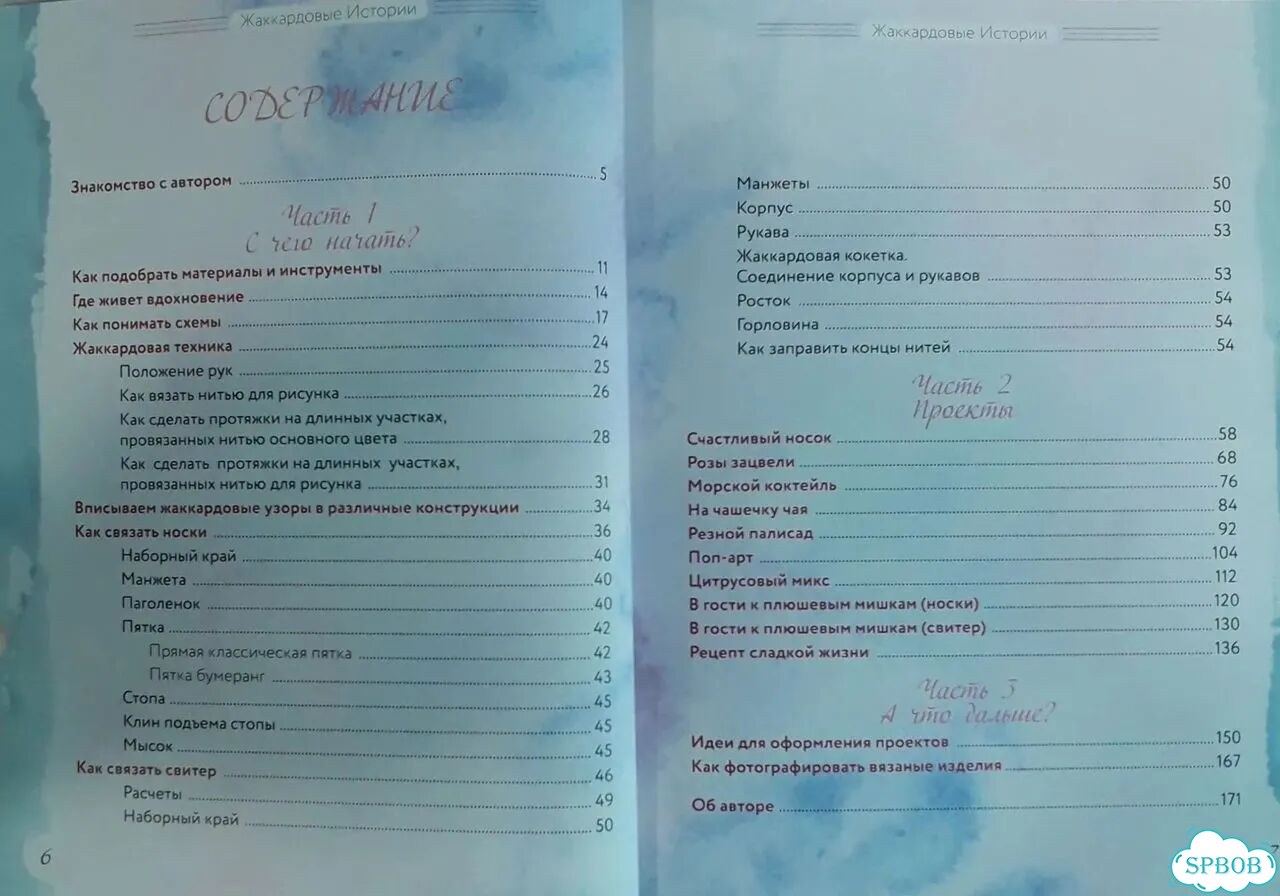 Жаккардовые Истории
СОДЕРЖАНИЕ
Знакомство с автором 5
Часть 1
С чего начать?
Как подобрать материалы и инструменты 11
Где живет вдохновение 14
Как понимать схемы 17
Жаккардовая техника 24
Положение рук 25
Как вязать нитью для рисунка 26
Как сделать протяжки на длинных участках,
провязанных нитью основного цвета 28
Как сделать протяжки на длинных участках,
провязанных нитью для рисунка 31
Вписываем жаккардовые узоры в различные конструкции 34
Как связать носки 36
Наборный край 40
Манжета 40
Паголенок 40
Пятка 42
Прямая классическая пятка 42
Пятка бумеранг 43
Стопа 45
Клин подъема стопы 45
Мысок 45
Как связать свитер 46
Расчеты 49
Наборный край 50
6
Жаккардовые Истории
Манжеты 50
Корпус 50
Рукава 53
Жаккардовая кокетка.
Соединение корпуса и рукавов 53
Росток 54
Горловина 54
Как заправить концы нитей 54
Часть 2
Проекты
Счастливый носок 58
Розы зацвели 68
Морской коктейль 76
На чашечку чая 84
Резной палисад 92
Поп-арт 104
Цитрусовый микс 112
В гости к плюшевым мишкам (носки) 120
В гости к плюшевым мишкам (свитер) 130
Рецепт сладкой жизни 136
Часть 3
А что дальше?
Идеи для оформления проектов 150
Как фотографировать вязаные изделия 167
Об авторе 171
7
SPBOB